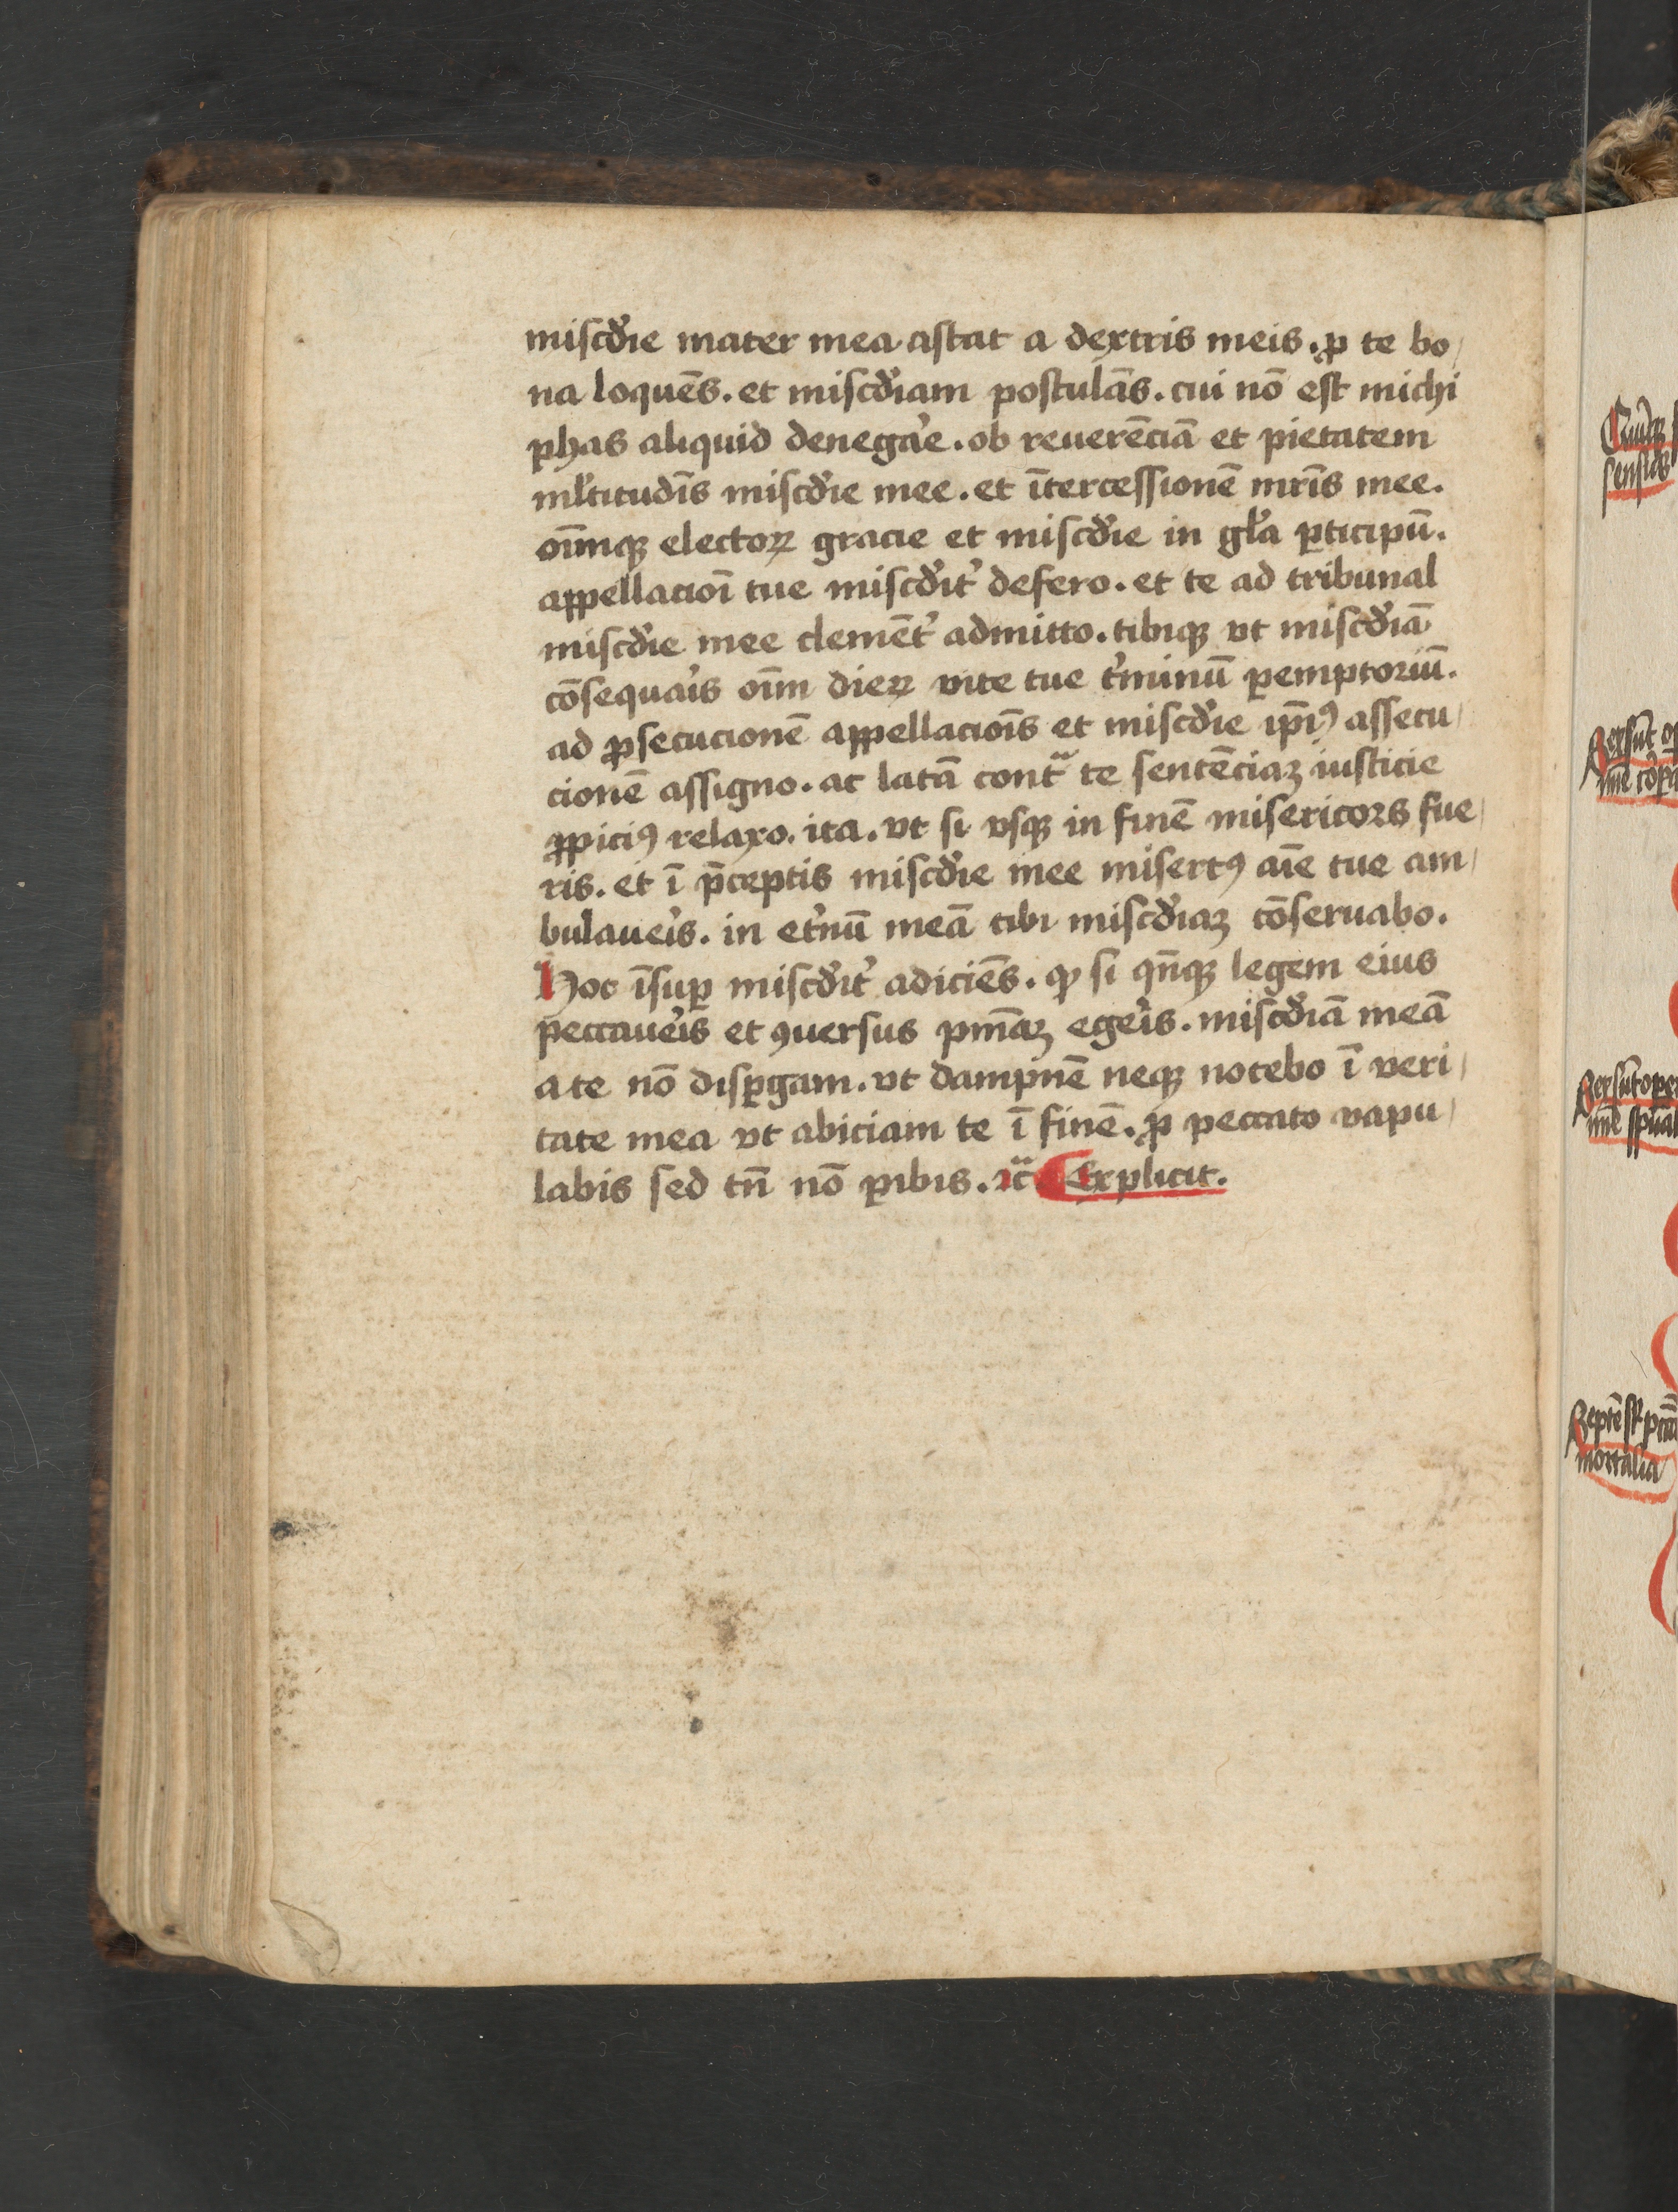 miſcđie mater mea aſtat a dextris meis. ꝓ te bo/
na loquēs. et miſcđiam poſtulās. cui nō eſt michi
phas aliquid denegar̓e. ob reuerēciā et pietatem
ml̓titudīs miſcđie mee. et ītercessionē mr̄is mee.
oīmqꝫ electoꝝ gracie et miſcđie in gl̓a ꝑticipū.
appellacioī tue miſcđit̓ defero. et te ad tribunal
miſcđie mee clemēt̓ admitto. tibiqꝫ vt miſcđiā
cōsequar̓is oīm dieꝝ vite tue t̓minū ꝑemptoriū.
ad ꝓsecucionē appellacioīs et miſcđie ip̄iꝰ aſſecu/
cionē aſſigno. ac latā contͣ te sentēciaꝫ iuſticie
ꝓpiciꝰ relaxo. ita. vt si vſqꝫ in finē misericors fue/
ris. et ī p̄ceptis miſcđie mee misertꝰ aīe tue am/
bulauer̓is. in et̓nū meā tibi miſcđiaꝫ cōseruabo.
Hoc īsuꝑ miſcđit̓ adiciēs. ꝙ si qn̄qꝫ legem eius
peccauer̓is et ꝯuersus pn̄iaꝫ eger̓is. miſcđiā meā
a te nō diſꝑgam. vt dampnē neqꝫ nocebo ī veri/
tate mea vt abiciam te ī finē. ꝓ peccato vapu/
labis sed tn̄ nō ꝑibis. ꝛc̄. Explicit.
mortalia